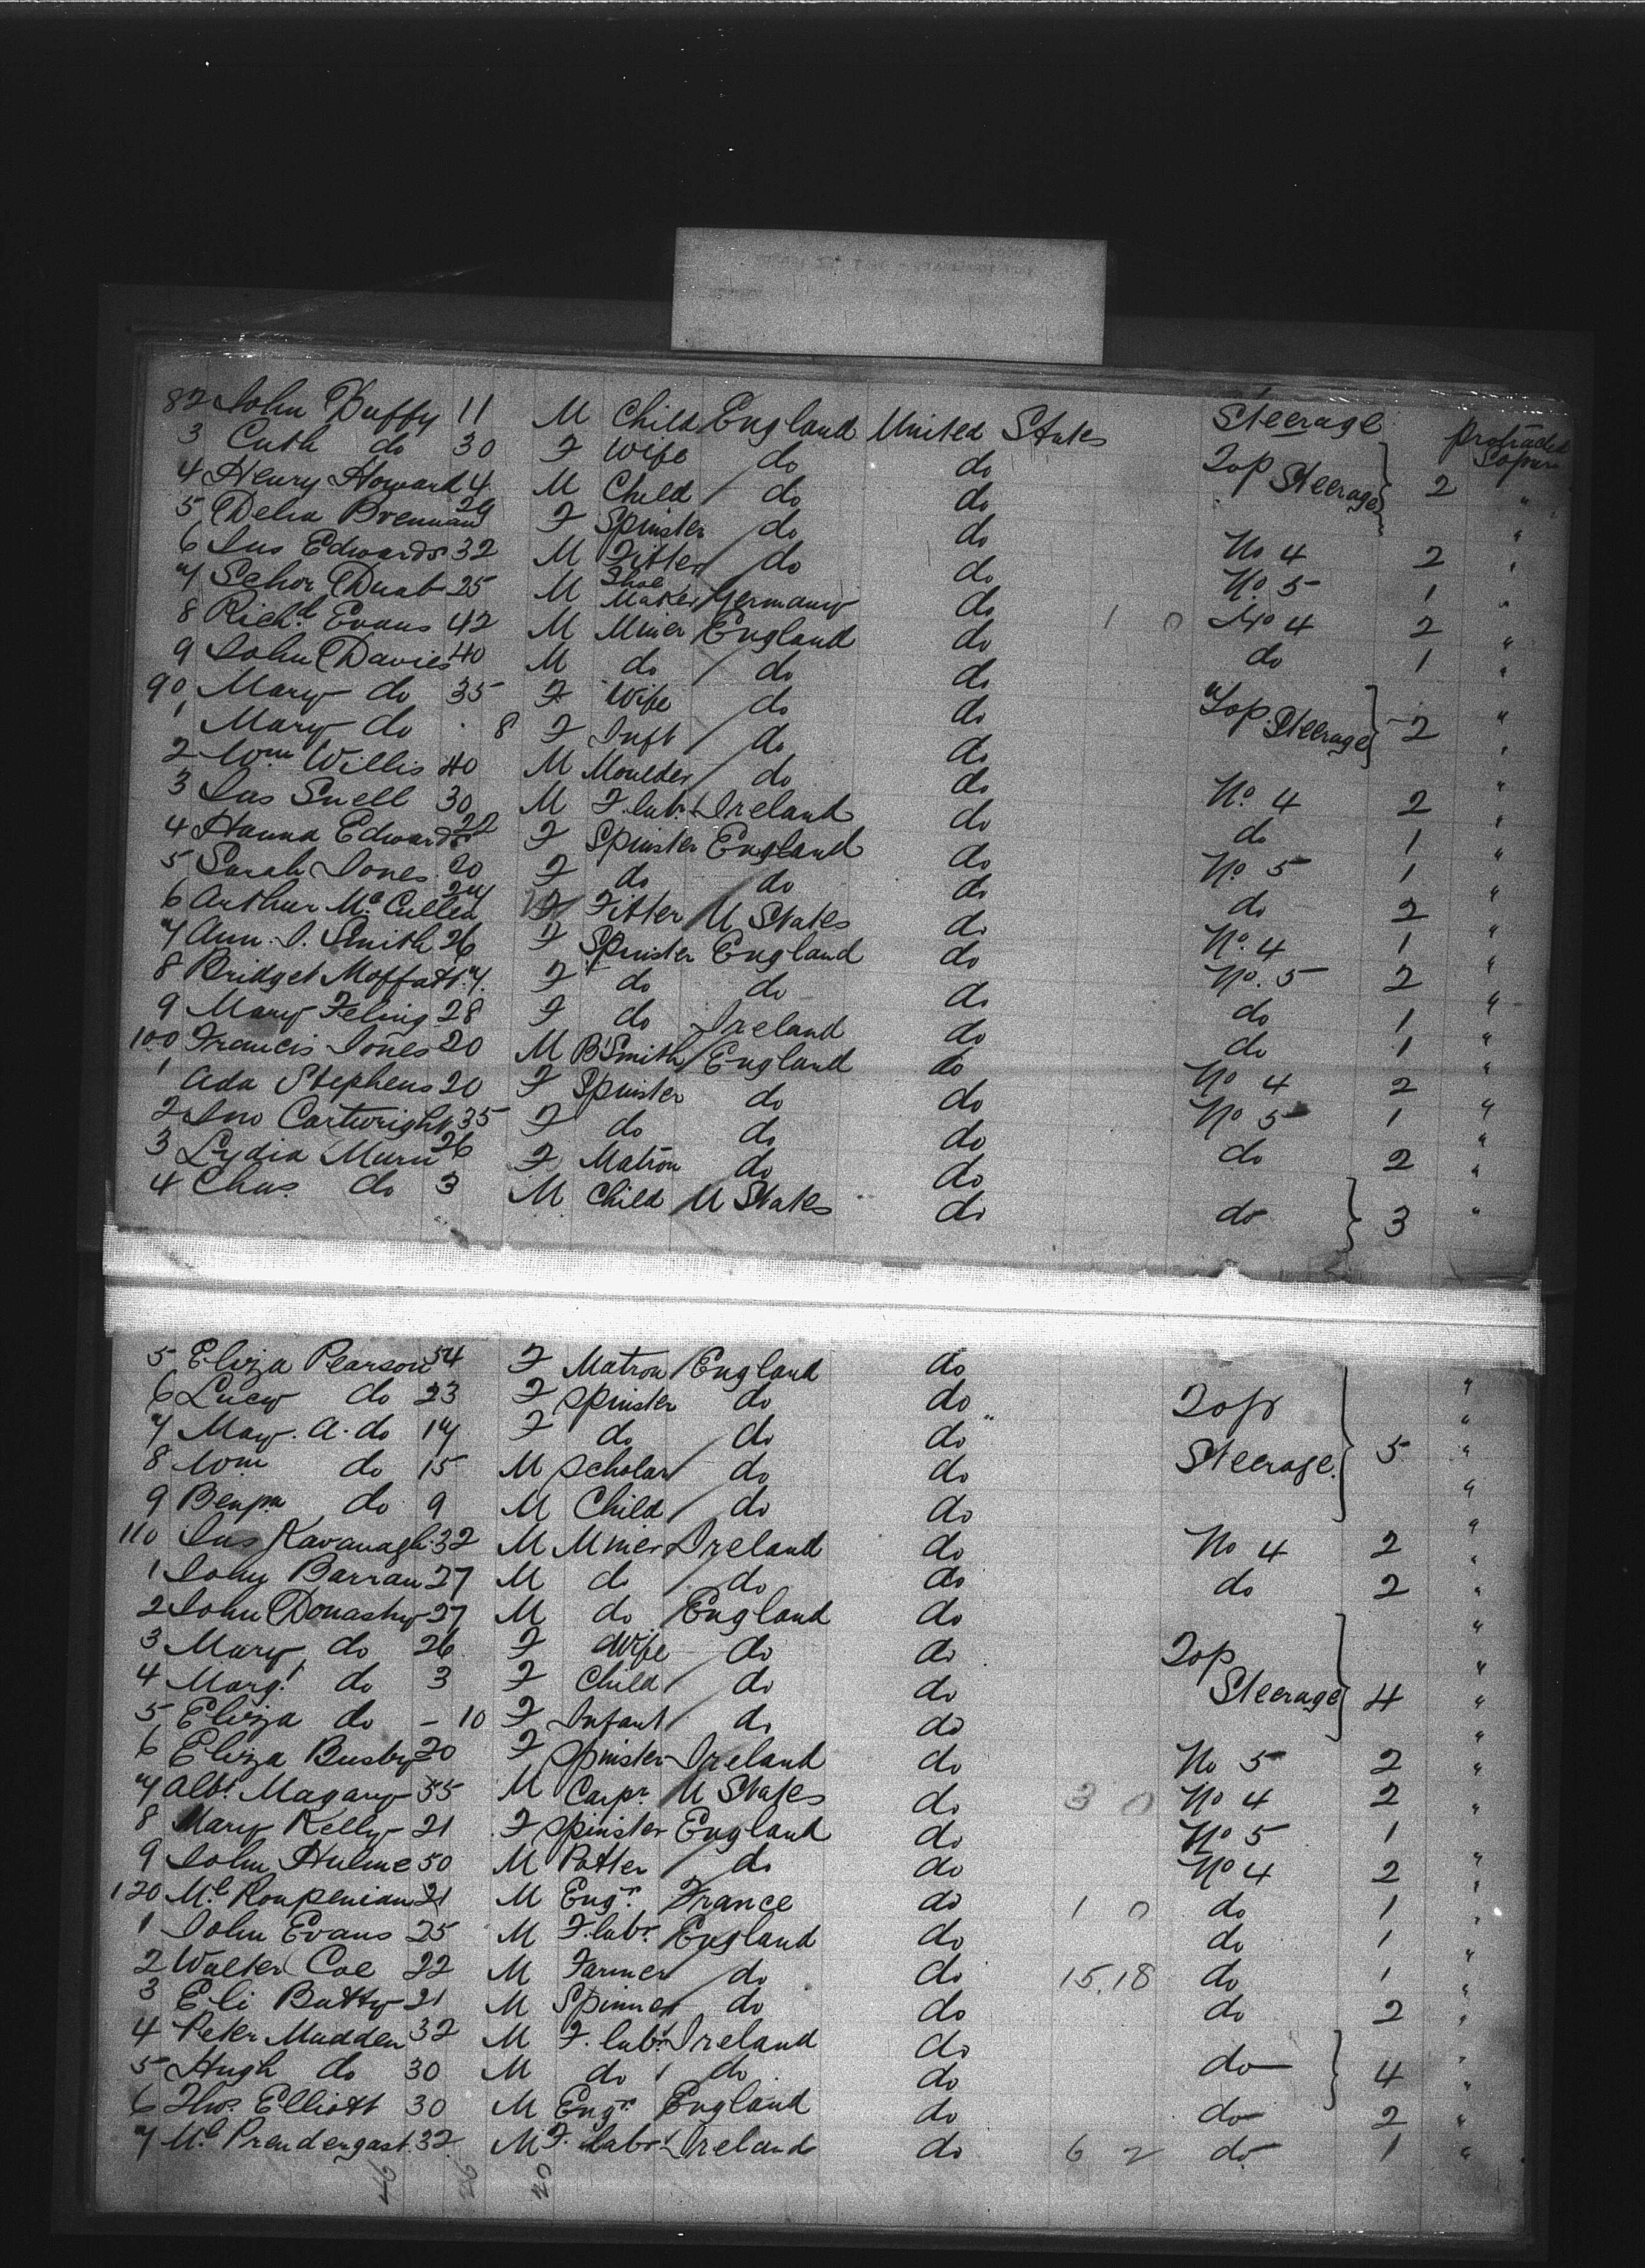 82 John Buffy 11 M Child England United States Steerage
3 Cuth do 30 F Wife do do Top Steerage 2 "
4 Henry Howard 4 M Child do do "
5 Delia Brennan 29 F Spinster do do No 4 2 "
6 Jas Edwards 32 M Fitter do do No. 5 1 "
7 Schor Duab 25 M Shoe Maker Germany do 1 0 No 4 2 "
8 Richd. Evans 42 M Miner England do do 1 "
9 John Davies 40 M do do do
90 Mary do 35 F Wife do do Top Steerage 2 "
1 Mary do 8 F Inft do do "
2 Wm Willis 40 M Moulder do do No. 4 2 "
3 Jas Snell 30 M F. labr. Ireland do do 1 "
4 Hanna Edwards 22 F Spinster England do No. 5 1 "
5 Sarah Jones 20 F do do do do 2 "
6 Arthur McCullen 24 F Fitter U States do No. 4 1 "
7 Ann. J. Smith 26 F Spinster England do No. 5 2 "
8 Bridget Moffatt F do do do do 1 "
9 Mary Feling 28 F do Ireland do do 1 "
100 Francis Jones 20 M B'Smith England do No 4 2 "
1 Ada Stephens 20 F Spinster do do No 5 1 "
2 Jno Cartwright 35 F do do do do 2 "
3 Lydia Munn 26 F Matron do do
4 Chas. do 3 M Child U States do do 3 "
5 Eliza Pearson 54 F Matron England do "
6 Lucy do 23 F Spinster do do Top "
7 May. A. do 17 F do do do Steerage 5 "
8 Wm do 15 M Scholar do do "
9 Benjn do 9 M Child do do "
110 Jas Kavanagh 32 M Miner Ireland do No 4 2 "
1 John Barran 27 M do do do do 2 "
2 John Donashy 27 M do England do "
3 Mary do 26 F Wife do do Top "
4 Margt. do 3 F Child do do Steerage 4 "
5 Eliza do - 10 F Infant do do "
6 Eliza Busby 20 F Spinster Ireland do No 5 2 "
7 Albt. Magary 55 M Carpr. U States do 3 0 No 4 2 "
8 Mary Kelly 21 F Spinster England do No 5 1 "
9 John Hulme 50 M Potter do do No 4 2 "
120 Ml. Roupenian 21 M Engr. France do 1 0 do 1 "
1 John Evans 25 M F. labr. England do do 1 "
2 Walter Coe 22 M Farmer do do 15.18 do 1 "
3 Eli Batty 21 M Spinner do do do 2 "
4 Peter Madden 32 M F. labr. Ireland do "
5 Hugh do 30 M do do do do 4 "
6 Thos. Elliott 30 M Engr. England do do 2 "
7 Ml. Prendergast 32 M F. labr. Ireland do 6 2 do 1 "